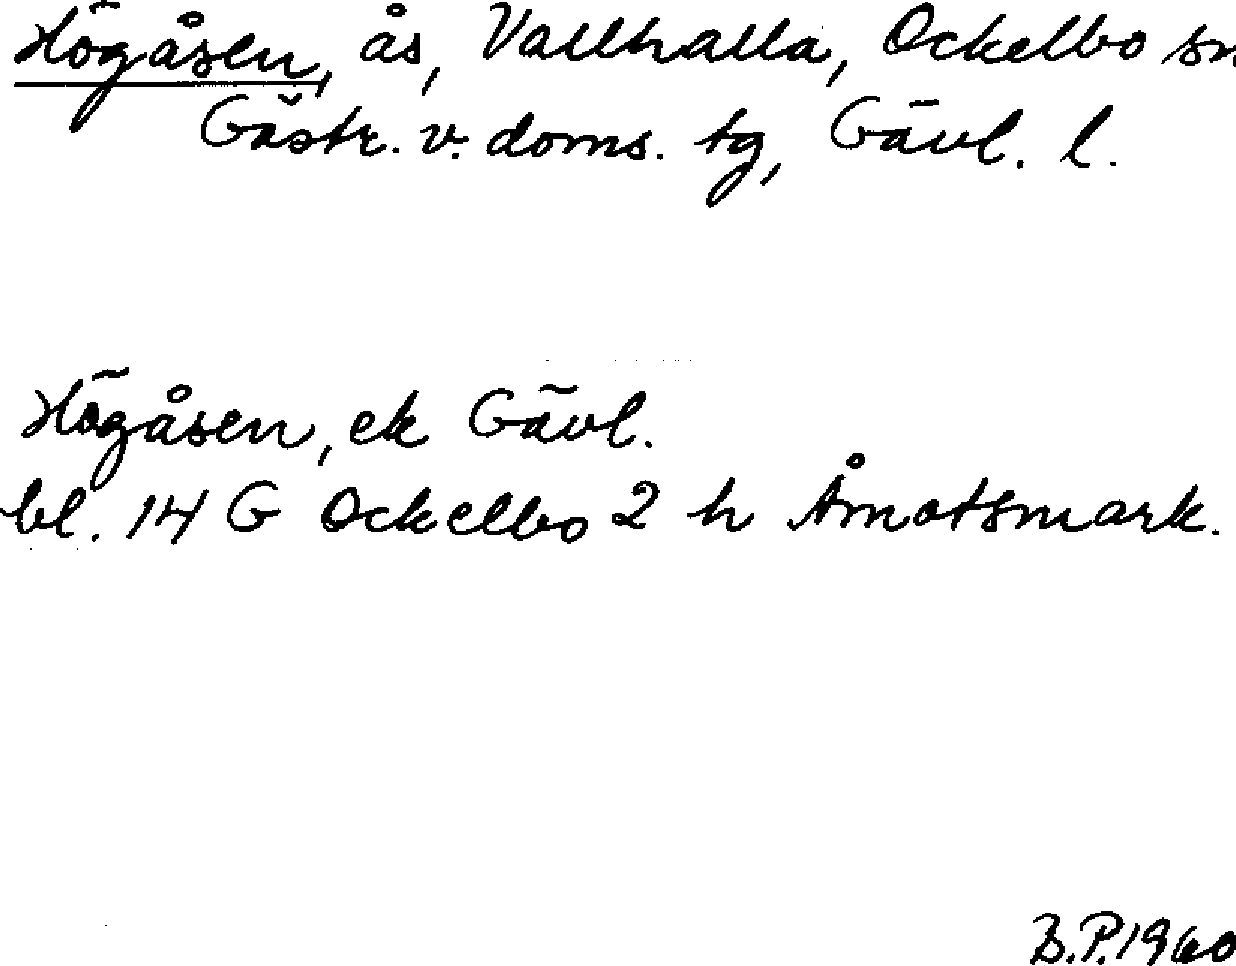 Högåsen, ås, Vallhalla, Ockelbo sn
Gästr. v. doms. tg, Gävl. l.
Högåsen, ek Gävl.
bl. 14 G Ockelbo 2 h Åmotsmark.
B.P. 1960